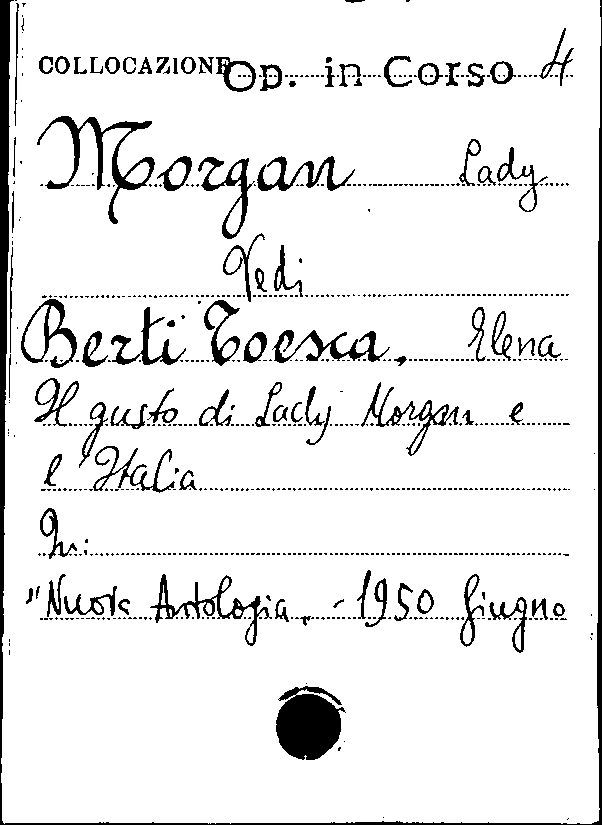 COLLOCAZIONE Op. in Corso 4
Morgan Lady
Vedi
Berti Toesca, Elena
Il gusto di Lady Morgan e
l'Italia
In:
"Nuova Antologia„ - 1950 Giugno